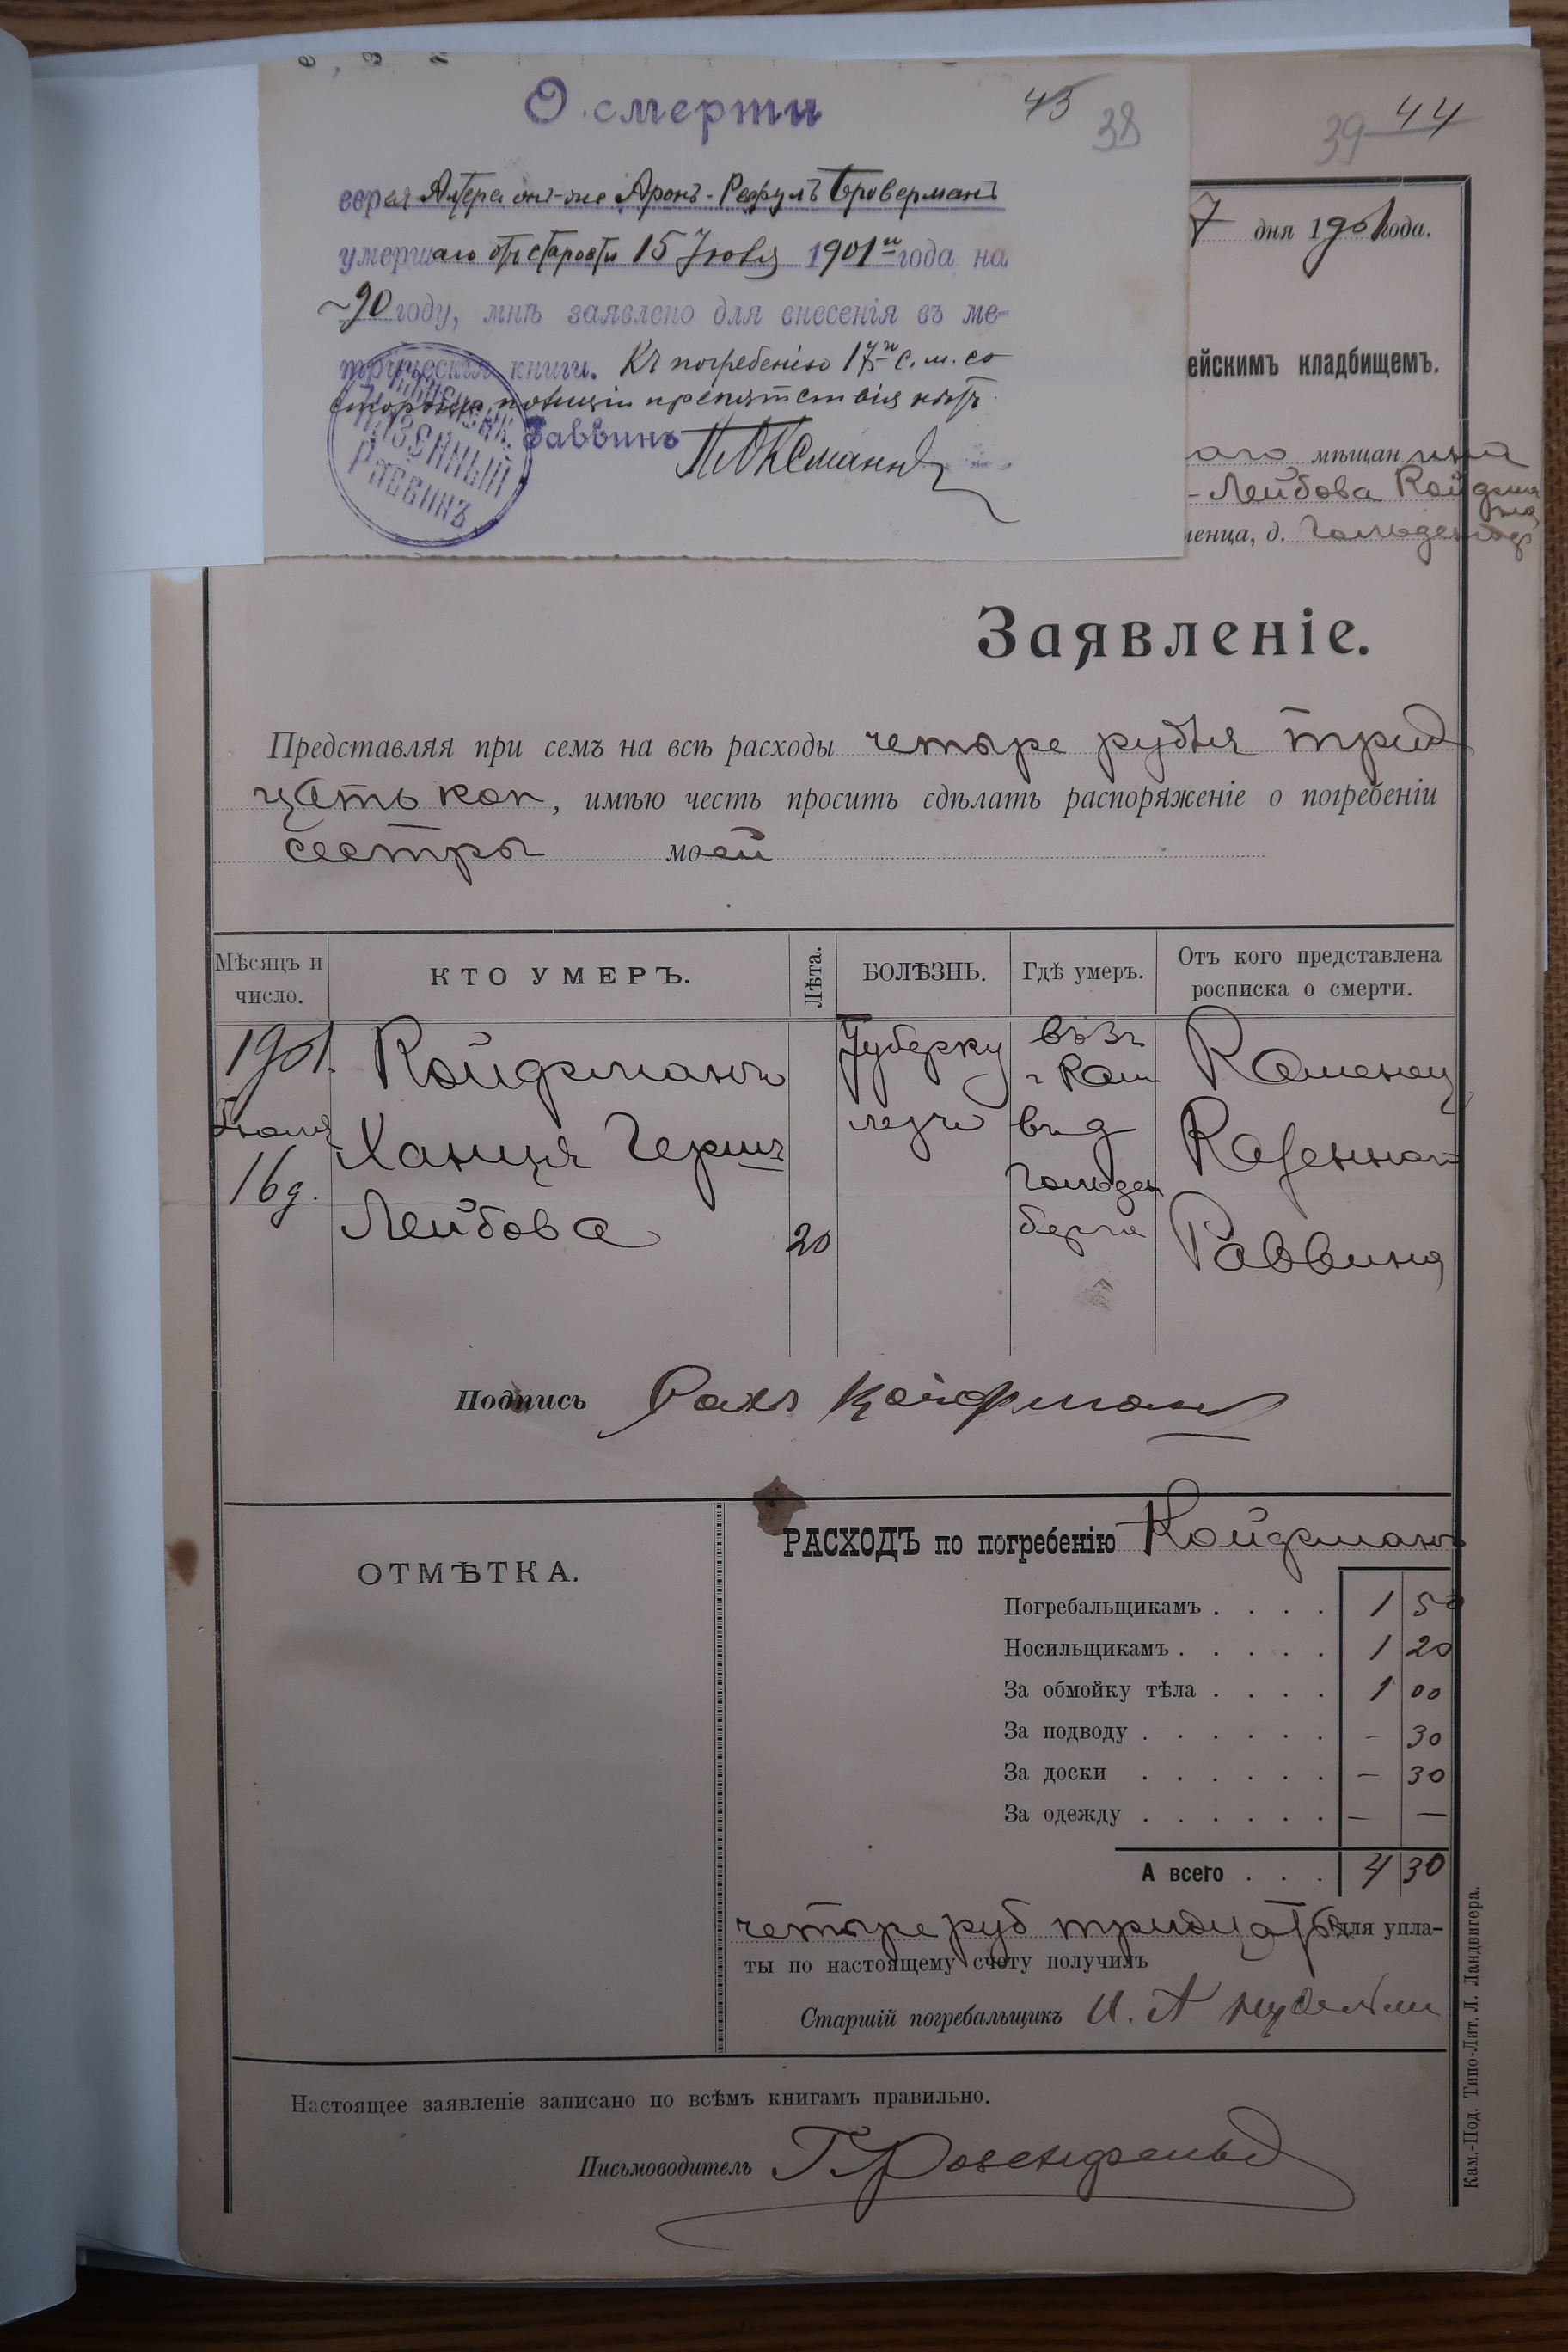 О смерти
45 38
39 44
еврея Алтера онъ-же Аронъ-Рефулъ Броверманъ
умершаго отъ старости 15 Іюля 1901 г. года на
90 году, мнѣ заявлено для внесенія въ ме-
трическія книги. Къ погребенію 17 с. м. со
стороны полиціи препятствія нѣтъ.
Раввинъ
КАЗЕННЫЙ
РАВВИНЪ
7 дня 1901 года.
ейскимъ кладбищемъ.
аго мѣщанина
-Лейбова Койфмана
менца, д. Гольденбер
Заявленіе.
Представляя при семъ на всѣ расходы четыре рубля трид
цать коп, имѣю честь просить сдѣлать распоряженіе о погребеніи
сестры моей
Мѣсяцъ и число. КТО УМЕРЪ. Лѣта. БОЛѢЗНЬ. Гдѣ умеръ. Отъ кого представлена росписка о смерти.
1901. Койфманъ Туберку въ г Кам Каменец
Іюля Ханця Герш лезъ въ д Казеннаго
16 д. Лейбова 20 Гольден берга Раввина
Подпись Койфман
ОТМѢТКА.
РАСХОДЪ по погребенію Койфманъ
Погребальщикамъ . . . . 1 50
Носильщикамъ . . . . . 1 20
За обмойку тѣла . . . . 1 00
За подводу . . . . . . - 30
За доски . . . . . . — 30
За одежду . . . . . . — —
А всего . . . 4 30
четыре руб тридцать для упла-
ты по настоящему счету получилъ
Старшій погребальщикъ И. А
Настоящее заявленіе записано по всѣмъ книгамъ правильно.
Письмоводитель Г. Розенфельд
Кам.-Под. Типо-Лит. Л. Ландвигера.